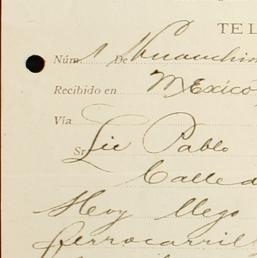 TEL
Núm. 1 De Huauchin
Recibido en Mexico,
Vía
Sr. Lic Pablo
Calle d
Hoy llego
ferrocarril